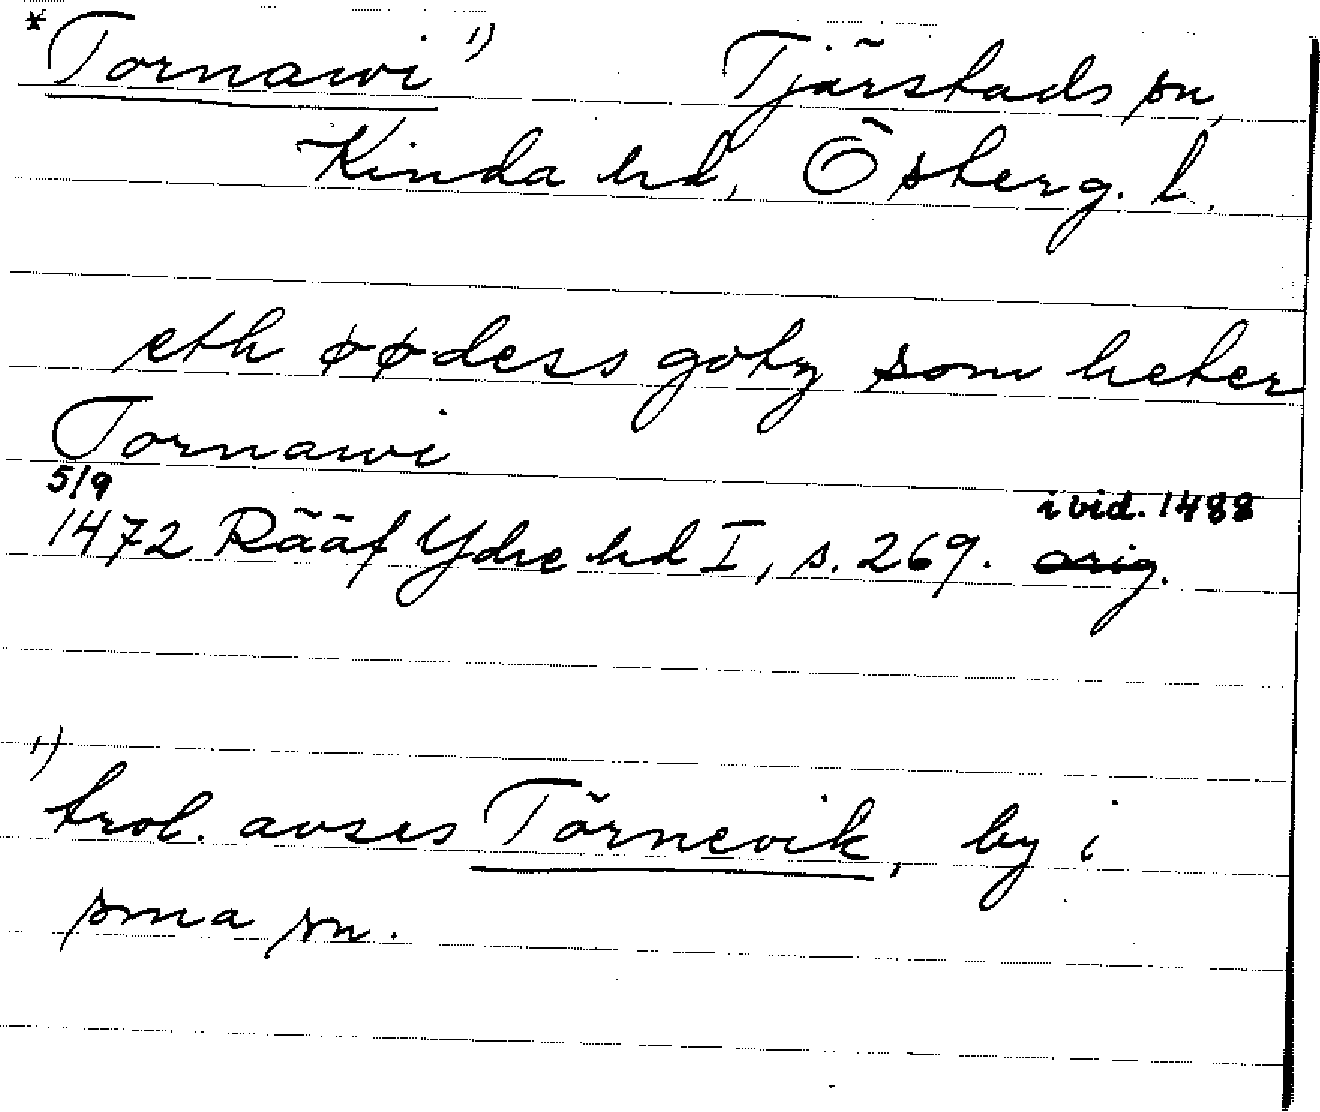 *Tornawi 1) Tjärstads sn,
Kinda hd, Österg. l.
eth øødess gotz som heter
Tornawi
5/9 i vid. 1488
1472 Rääf Ydre hd I, s. 269. orig.
1)
trol. avses Törnevik, by i
sma sn.